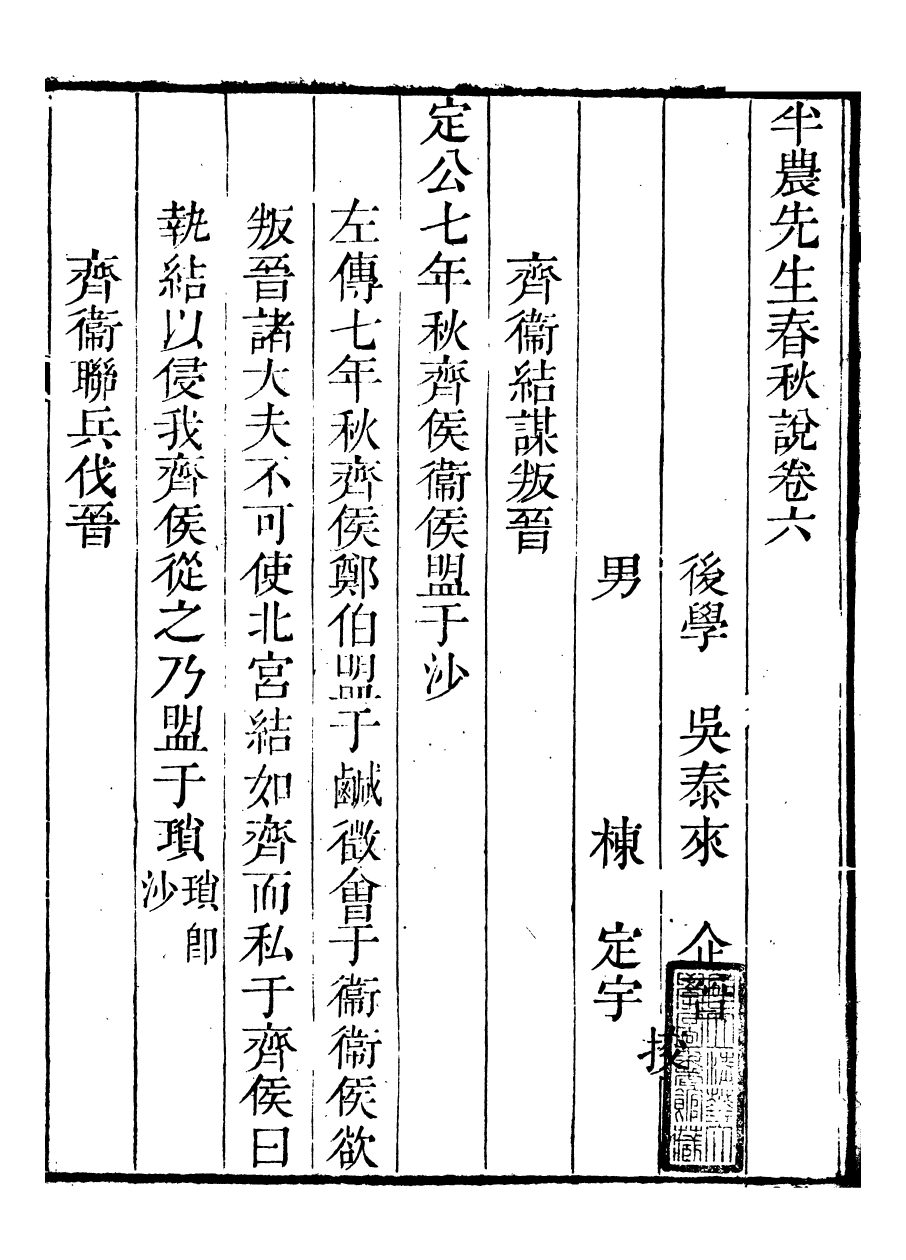 半農先生春秋說卷六
後學 吳泰來 企晉
男 棟 定宇 挍
齊衞結謀叛晉
定公七年秋齊侯衞侯盟于沙
左傳七年秋齊侯鄭伯盟于鹹徵會于衞衞侯欲
叛晉諸大夫不可使北宮結如齊而私于齊侯曰
執結以侵我齊侯從之乃盟于瑣瑣卽沙
齊衞聯兵伐晉